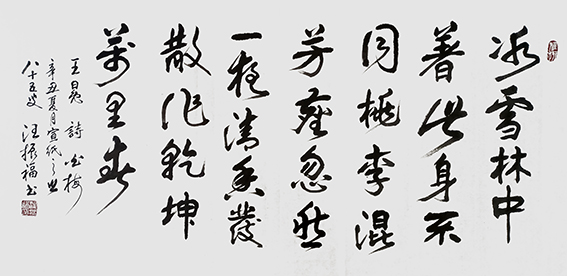 冰雪林中
著此身不
同桃李混
芳塵忽然
一夜清香發
散作乾坤
萬里春
王冕 詩 白梅
辛丑夏月宣紙之鄉
八十五叟 汪振福書